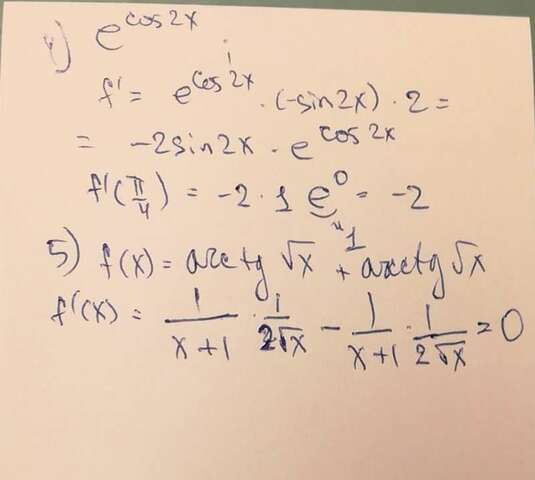 4) e^cos2x ;
f' = e^cos2x · (-sin2x) · 2 =
= -2sin2x · e^cos2x
f'(π/4) = -2 · 1 e^0 = -2
" 1
5) f(x) = arctg √x + arcctg √x
f'(x) = 1/(x+1) · 1/(2√x) - 1/(x+1) · 1/(2√x) = 0